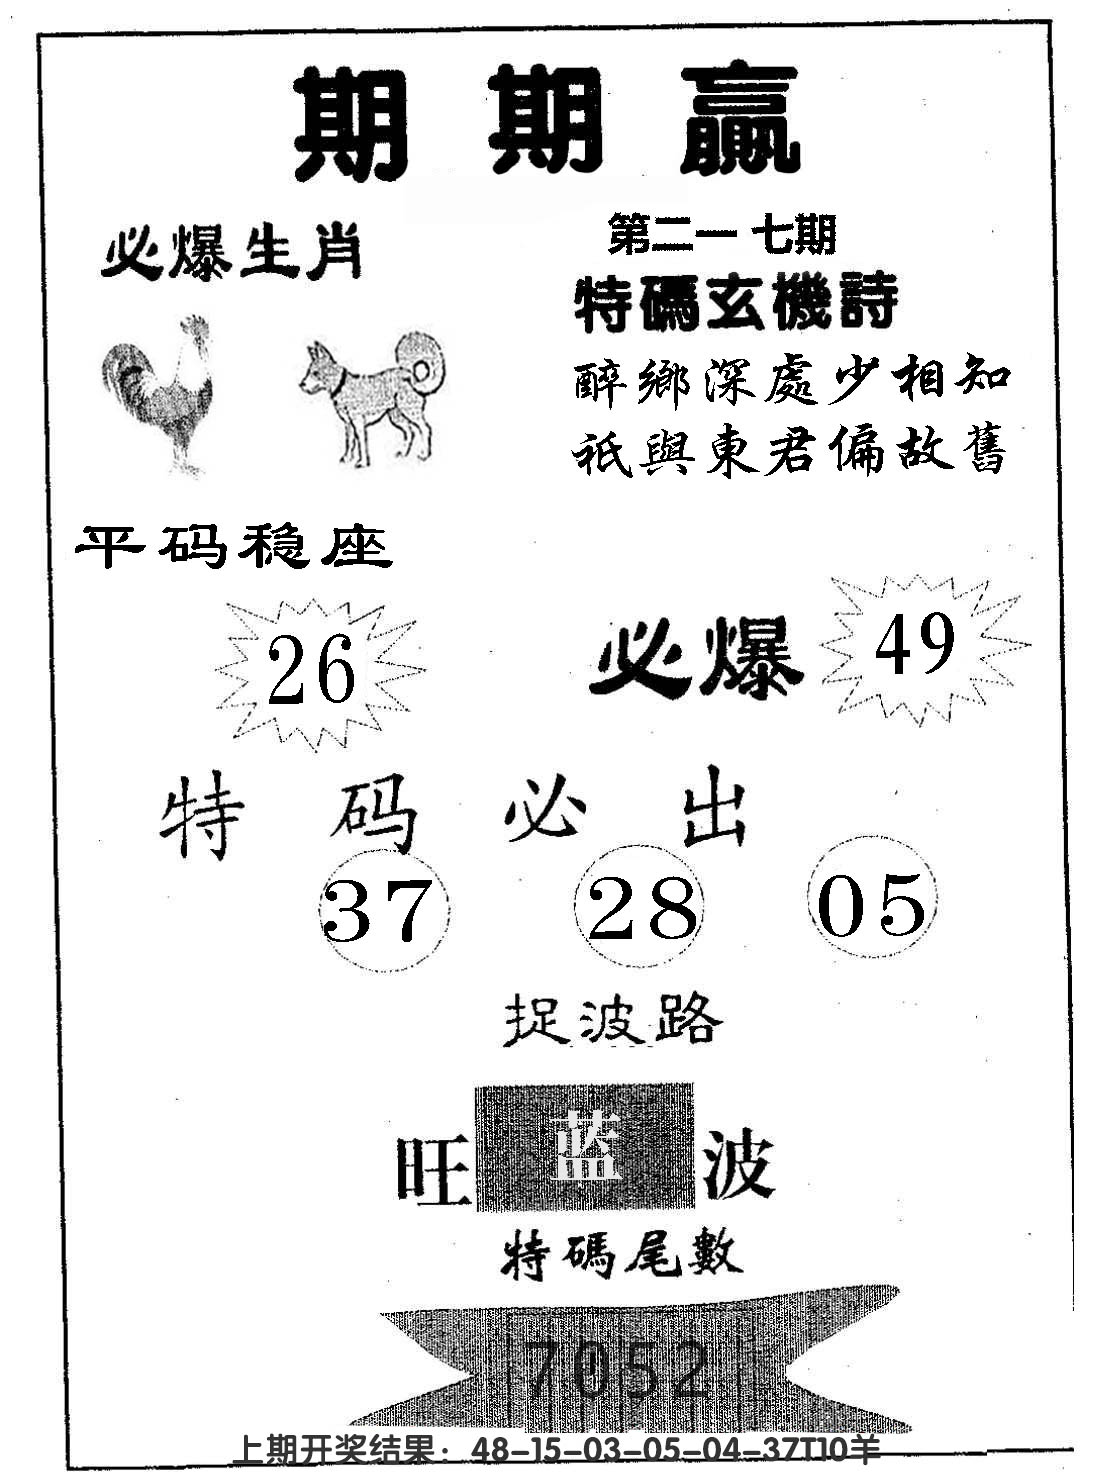 期期赢
必爆生肖
第二一七期
特碼玄機詩
醉鄉深處少相知
祇與東君偏故舊
平码稳座
26
必爆 49
特码必出
37 28 05
捉波路
旺蓝波
特碼尾數
7052
上期开奖结果：48-15-03-05-04-37T10羊